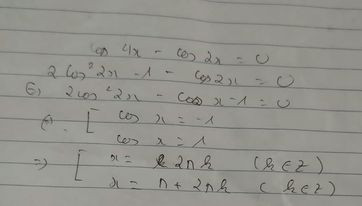 cos 4x - cos 2x = 0
2 cos² 2x - 1 - cos 2x = 0
(=) 2cos² 2x - cos x - 1 = 0
(=) [ cos x = -1
cos x = 1
=> [ x = k2πk (k ∈ Z)
x = π + 2πk (k ∈ Z)